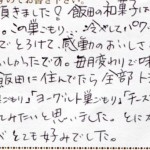 頂きました！飯田の和菓子は
。この巣ごもり…冷やしてパクッ
でとろけて、感動のおいしさ
しかったです。毎月変わりで味
飯田に住んでたら全部ト
巣ごもり」「ヨーグルト巣ごもり」「チーズ
みたいと思いました。とにか
とても好みでした。